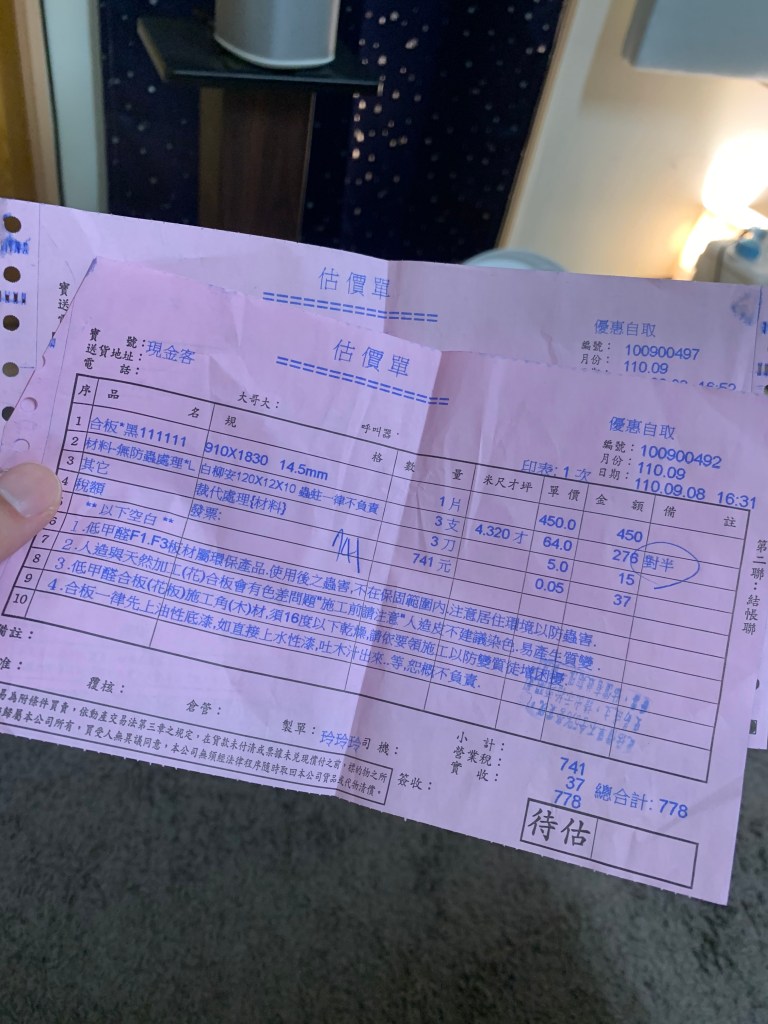 估價單
優惠自取
編號： 100900497
月份： 110.09
16:52
估價單
優惠自取
寶號：現金客
送貨地址：
電話：
大哥大：
呼叫器：
印表：1 次
編號： 100900492
月份： 110.09
日期： 110.09.08 16:31
序 品名 規格 數量 末尺才坪 單價 金額 備註
1 合板*黑111111 910X1830 14.5mm 1 片 450.0 450
2 材料-無防蟲處理*L 白柳安120X12X10 蟲蛀一律不負責 3 支 4.320 才 64.0 276 對半
3 其它 裁代處理{材料} 3 刀 5.0 15
4 稅額 發票: 741 元 0.05 37
** 以下空白 **
1.低甲醛F1.F3板材屬環保產品.使用後之蟲害,不在保固範圍內.注意居住環境以防蟲害.
2.人造與天然加工(花)合板會有色差問題"施工前請注意"人造皮不建議染色.易產生質變.
3.低甲醛合板(花板)施工角(木)材,須16度以下乾燥,請依要領施工以防變質徒增困擾.
4.合板一律先上油性底漆,如直接上水性漆,吐木汁出來..等,恕概不負責.
7
8
9
10
備註：
准：
覆核：
倉管：
製單：玲玲玲
司機：
簽收：
小計： 741
營業稅： 37
實收： 778
總合計: 778
待估
易為附條件買賣，依動產交易法第三章之規定，在貨款未付清或票據未兌現償付之前，標的物之所
歸屬本公司所有，買受人無異議同意，本公司無須經法律程序隨時取回本公司貨品或代物清償。
第二聯：結帳聯